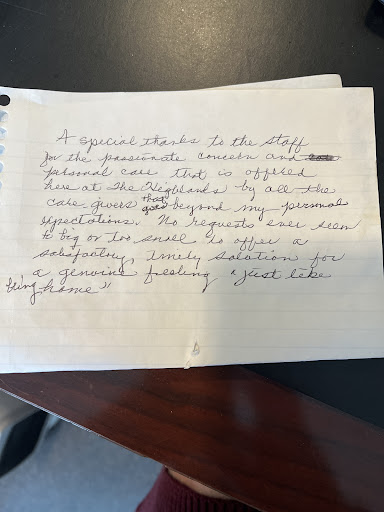 A special thanks to the staff
for the passionate concern and
personal care that is offered
here at The Highlands by all the
care givers that goes beyond my personal
expectations. No requests ever seem
to big or too small to offer a
satisfactory, timely solution for
a genuine feeling "just like
being home"